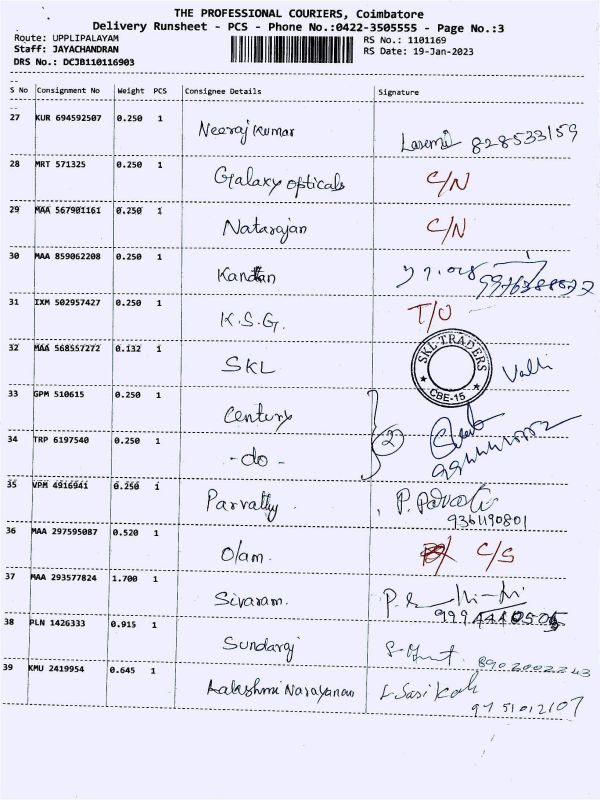 THE PROFESSIONAL COURIERS, Coimbatore
Delivery Runsheet - PCS - Phone No.:0422-3505555 - Page No.:3
Route: UPPLIPALAYAM RS No.: 1101169
Staff: JAYACHANDRAN RS Date: 19-Jan-2023
DRS No.: DCJB110116903
S No Consignment No Weight PCS Consignee Details Signature
27 KUR 694592507 0.250 1 Neeraj Kumar 828533159
28 MRT 571325 0.250 1 Galaxy opticals C/N
29 MAA 567901161 0.250 1 Natarajan C/N
30 MAA 859062208 0.250 1 Kandan
31 IXM 502957427 0.250 1 K.S.G. T/O
32 MAA 568557272 0.132 1 SKL SKL TRADERS CBE-15 Valli
33 GPM 510615 0.250 1 Century 2
34 TRP 6197540 0.250 1 -do-
35 VPM 4916941 0.250 1 Parvathy P. Parvati
9361190801
36 MAA 297595087 0.520 1 Olam. C/S
37 MAA 293577824 1.700 1 Sivaram.
38 PLN 1426333 0.915 1 Sundaraj
8902002243
39 KMU 2419954 0.645 1 Lalakshmi Narayanan L. Sasikala
9751012107